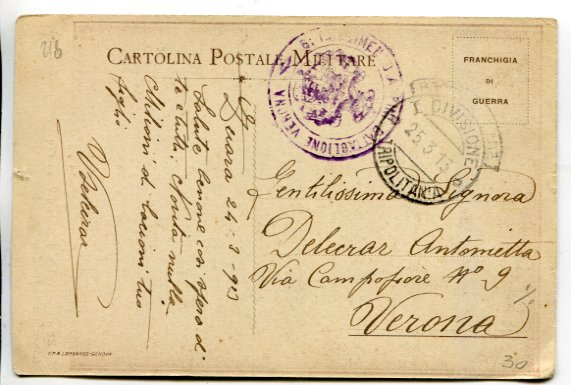 216
CARTOLINA POSTALE MILITARE
FRANCHIGIA
DI
GUERRA
BATTAGLIONE VERONA
I DIVISIONE
25.3.13
TRIPOLITANIA
24-3-913
Salute benone così spero di
te e tutti. Novità nulla
Milioni di bacioni tuo
figlio
Gentilissima Signora
Delecrar Antonietta
Via Campofiore Nº 9
Verona
TIP. A. LOMBARDO-GENOVA
30